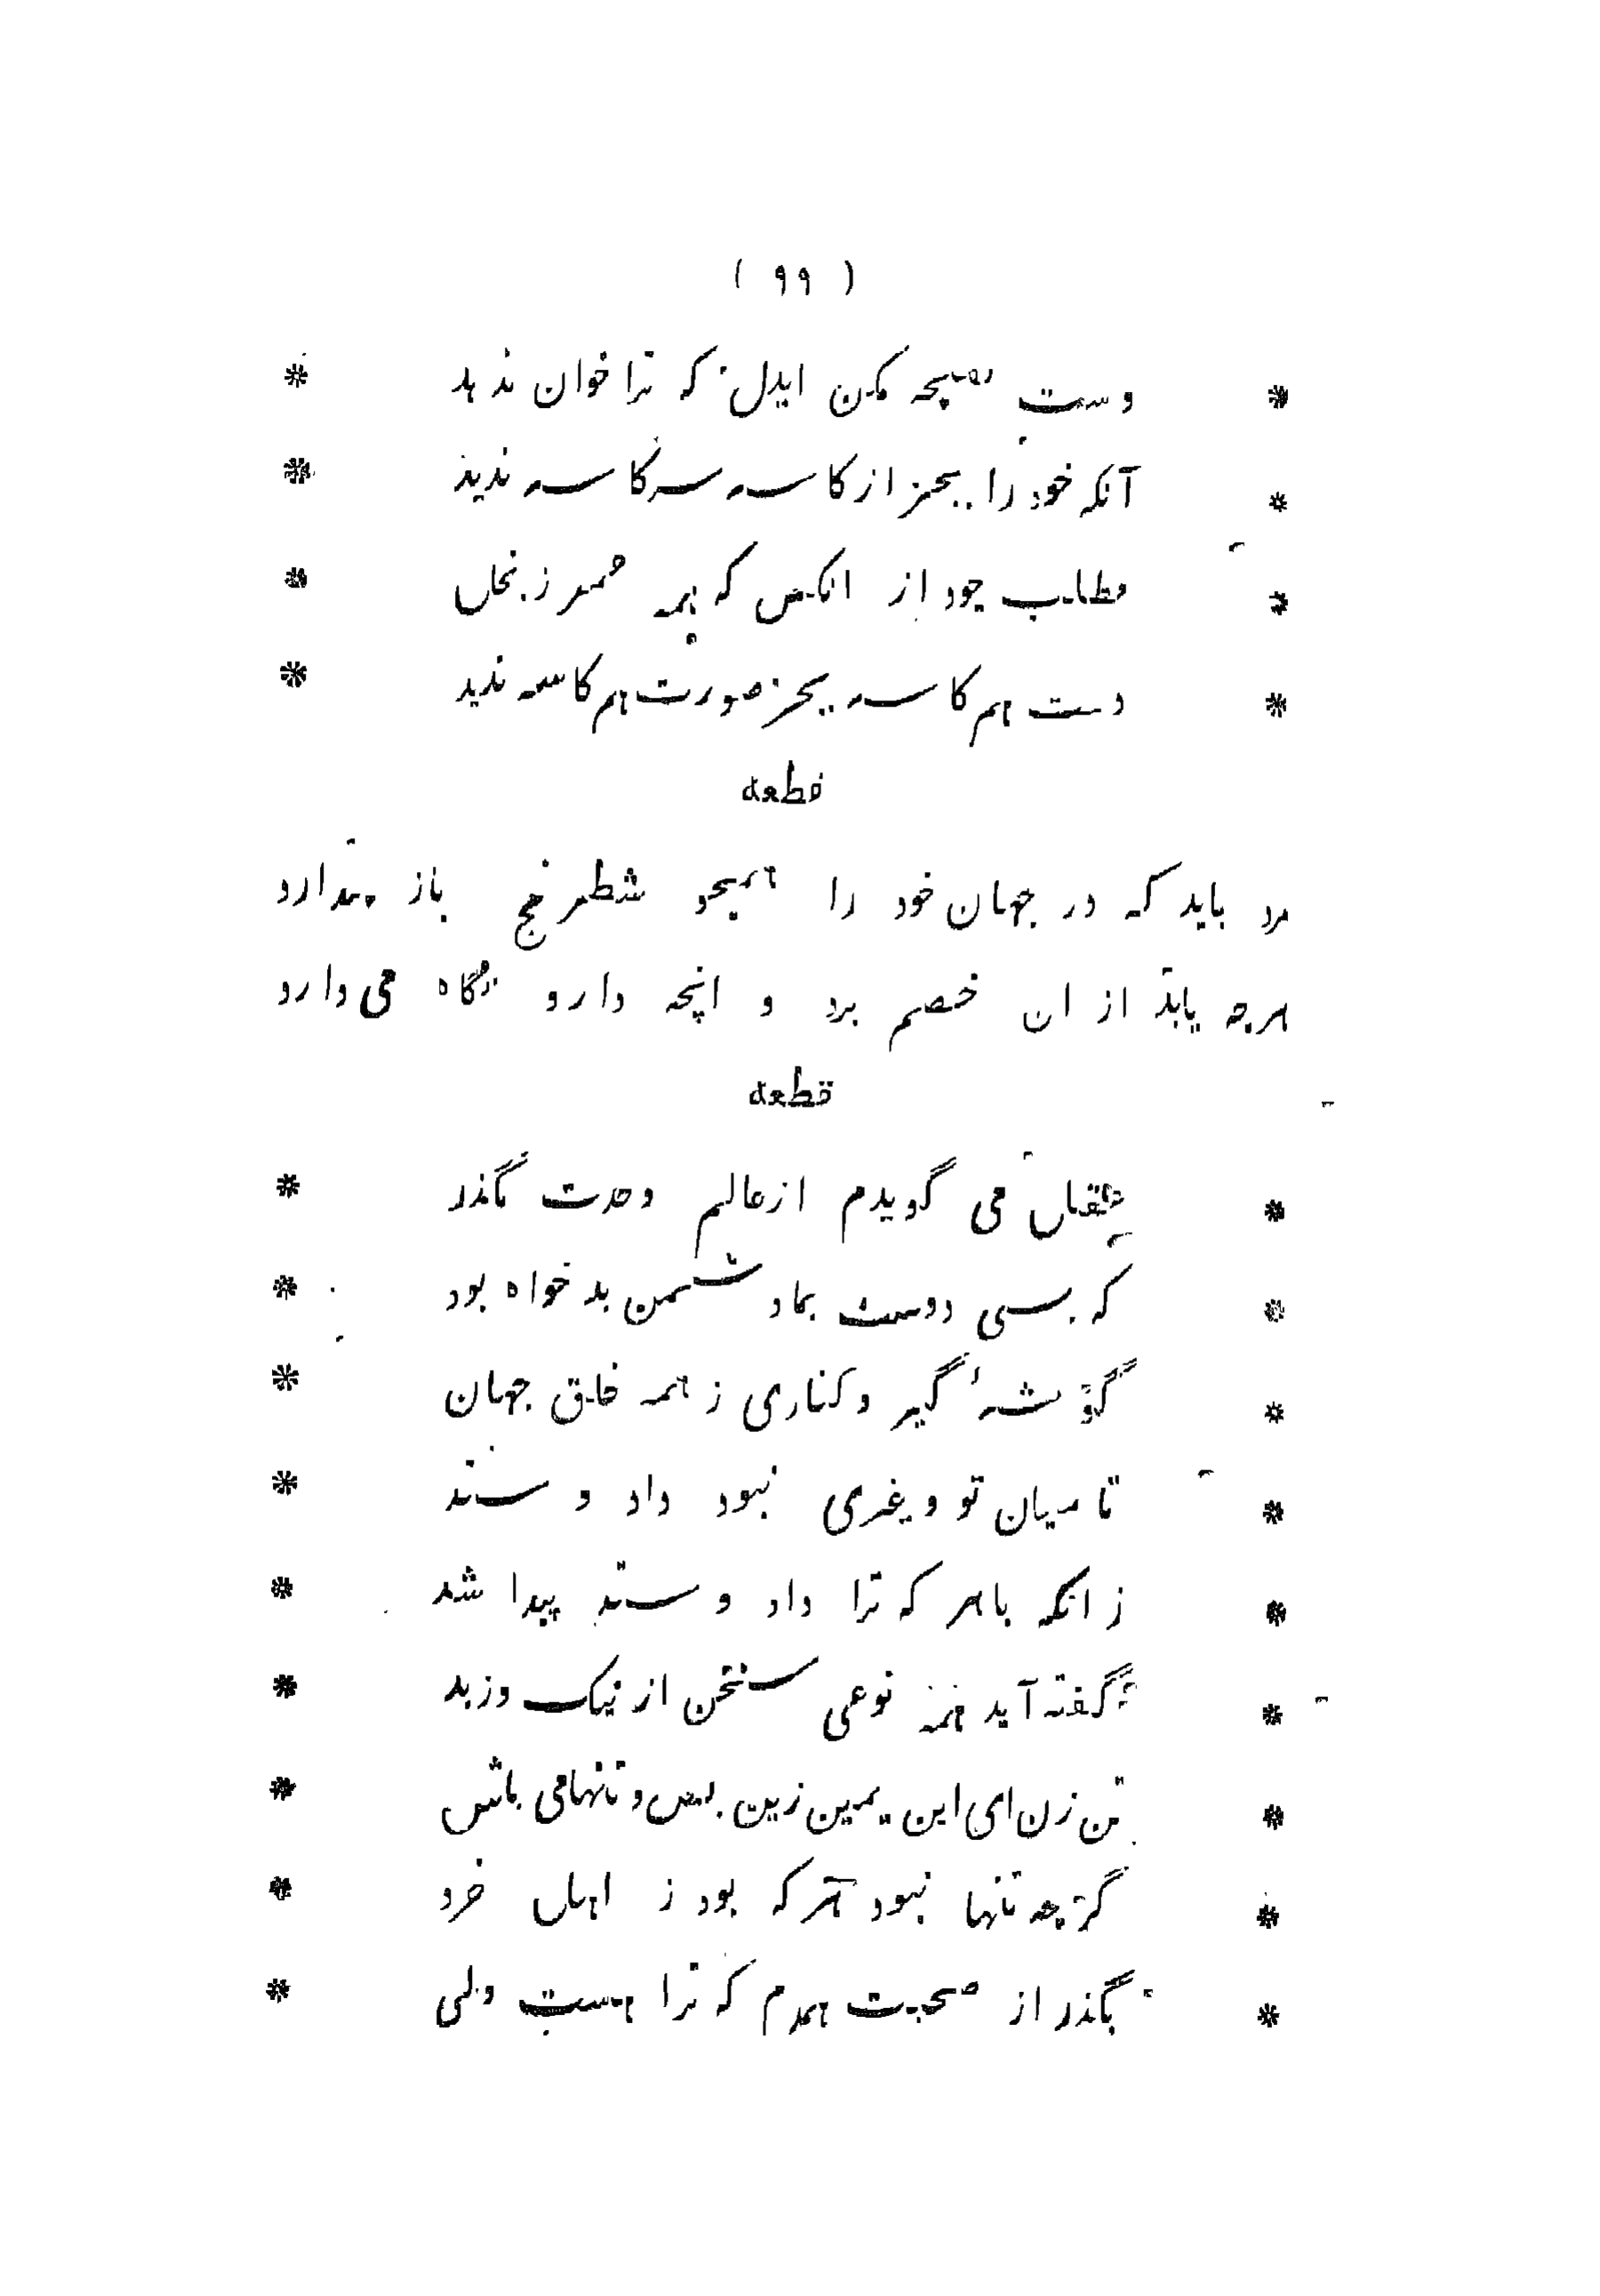 ( ۹۹ )
* دست مکن ایدل که ترا خوان ندهد *
* آنکه خود را بجز از کاسه سر کاسه ندید *
* مطلب جود از انکس که همه عمر ز بخل *
* دست هم کاسه بجز صورت هم کاسه ندید *
قطعه
مرد باید که در جهان خود را همچو شطرنج باز پندارد
هرچه یابد از ان خصم برد و انچه دارد نگاه می دارد
قطعه
* عقل می گویدم از عالم وحدت مگذر *
* که بسی دوست نما دشمن بد خواه بود *
* گوشهٔ گیر و کناری ز همه خلق جهان *
* تا میان تو و غیری نبود داد و ستد *
* زانکه با هر که ترا داد و ستد پیدا شد *
* گفته آید همه نوعی سخن از نیک و ز بد *
* تن زن ای ابن یمین زین پس و تنها می باش *
* گرچه تنها نبود هر که بود ز اهل خرد *
* بگذر از صحبت همدم که ترا هست ولی *